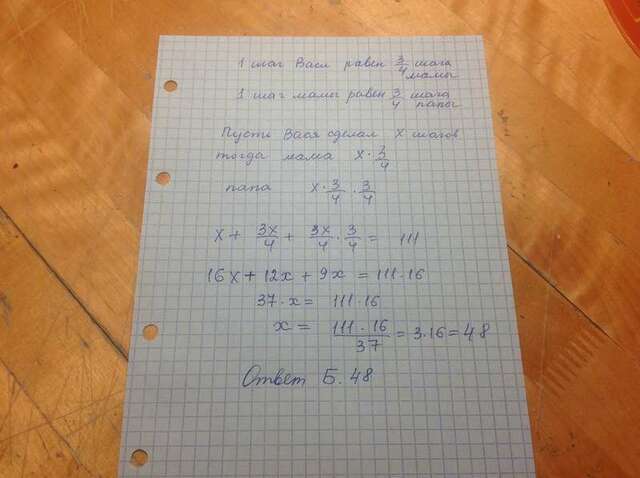 1 шаг Васи равен 3/4 шага мамы
1 шаг мамы равен 3/4 шага папы
Пусть Вася сделал x шагов
тогда мама x · 3/4
папа x · 3/4 · 3/4
x + 3x/4 + 3x/4 · 3/4 = 111
16x + 12x + 9x = 111 · 16
37 · x = 111 · 16
x = 111 · 16/37 = 3 · 16 = 48
Ответ Б. 48